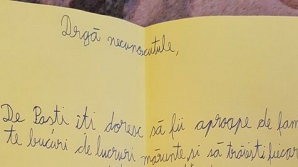 Drgă necunoscutule,
De Paști îți doresc să fii aproape de fam
te bucuri de lucruri mărunte și să trăiești fiecar